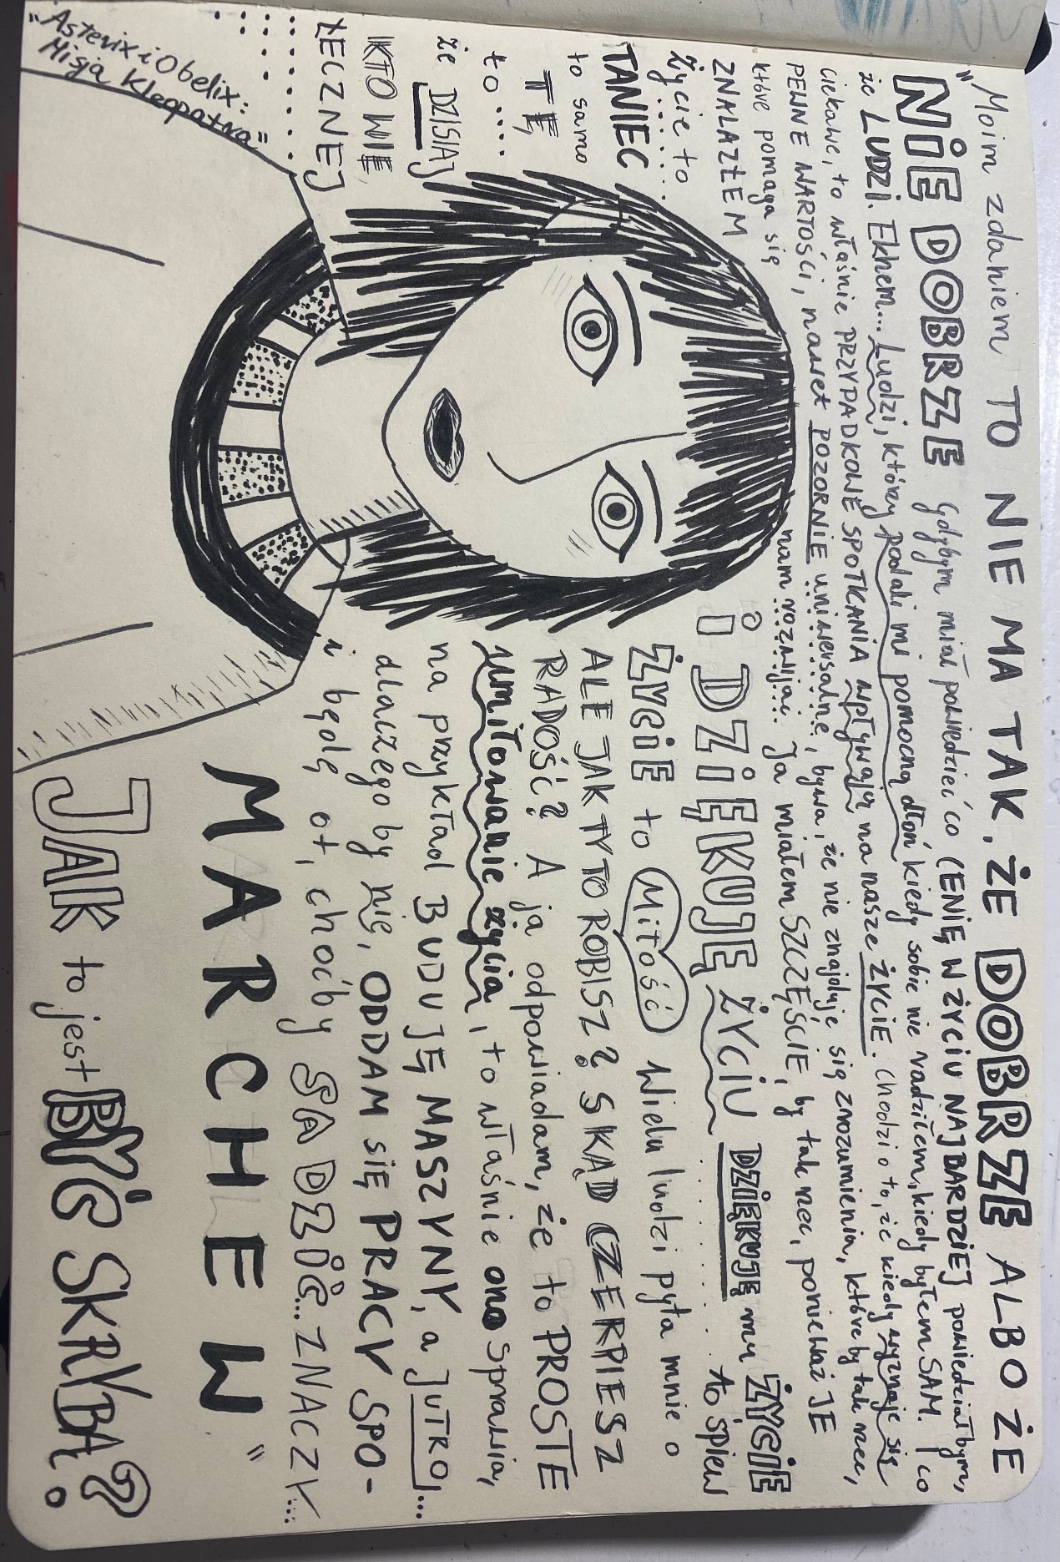 „Moim zdaniem TO NIE MA TAK, ŻE DOBRZE ALBO ŻE
NIE DOBRZE Gdybym miał powiedzieć co CENIĘ W ŻYCIU NAJBARDZIEJ powiedziałbym,
że LUDZI. Ekhem... Ludzi, który podali mi pomocną dłoń kiedy sobie nie radziłem, kiedy byłem SAM. I co
ciekawe, to właśnie PRZYPADKOWE SPOTKANIA wpływają na nasze ŻYCIE. Chodzi o to, że kiedy wyznaje się
PEWNE WARTOŚCI, nawet POZORNIE uniwersalne, bywa, że nie znajduje się zrozumienia, które by tak rzec,
które pomaga się nam rozwijać. Ja miałem SZCZĘŚCIE, by tak rzec, ponieważ JE
ZNALAZŁEM i DZIĘKUJĘ ŻYCIU DZIĘKUJĘ mu ŻYCIE to śpiew
życie to
TANIEC ŻYCIE to MIŁOŚĆ Wielu ludzi pyta mnie o
to samo ALE JAK TY TO ROBISZ? SKĄD CZERPIESZ
TĘ RADOŚĆ? A ja odpowiadam, że to PROSTE
to.... umiłowanie życia, to właśnie ono sprawia,
że DZISIAJ na przykład BUDUJĘ MASZYNY, a JUTRO...
KTO WIE, dlaczego by nie, ODDAM SIĘ PRACY SPO-
ŁECZNEJ i będę ot, choćby SADZIĆ... ZNACZY...
MARCHEW"
JAK to jest BYĆ SKRYBĄ?
„Asterix i Obelix:
Misja Kleopatra"